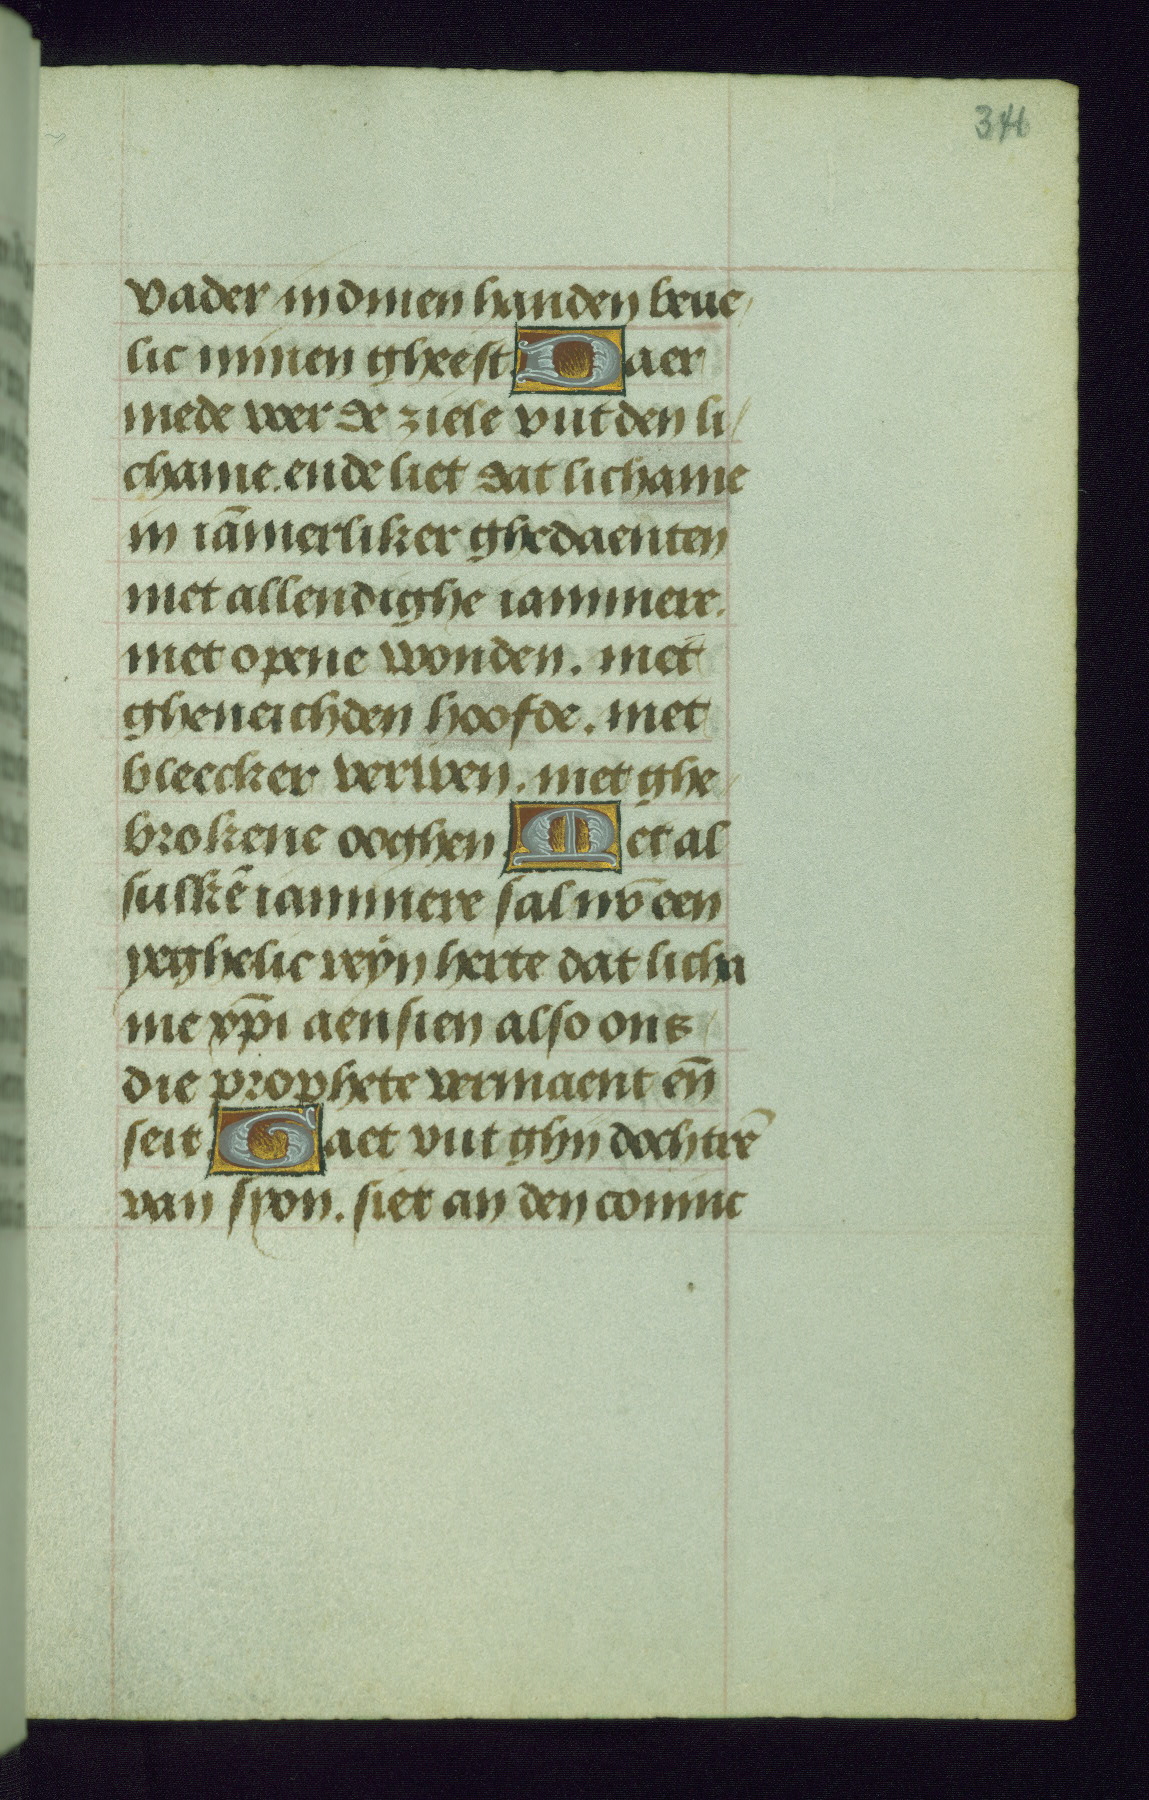 346
vader in dinen handen beue
lic minen gheest. Daer
mede voer de ziele vut den li
chame. ende liet dat lichame
in iāmerliker ghedaenten
met allendighe iammere.
met opene wonden. met
gheneichden hoofde. met
bleecker verwen. met ghe
brokene ooghen Met al
sulkē iammere sal nv een
yeghelic reyn herte dat licha
me xp̄i aensien also ons
die prophete vermaent en̄
seit. Gaet vut ghij dochtrē
van syon. siet an den coninc